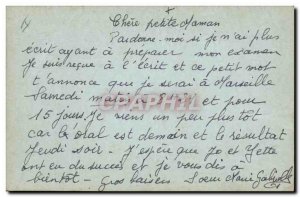 Chère petite Maman
Pardonne-moi si je n'ai plus
écrit ayant à préparer mon examen
Je suis reçue à l'écrit et ce petit mot
t'annonce que je serai à Marseille
Samedi et pour
15 jours. Je viens un peu plus tôt
car l'oral est demain et le résultat
Jeudi soir - J'espère que Jo et Yette
ont eu du succès et je vous dis à
bientôt - Gros baisers Soeur Marie Gabrielle